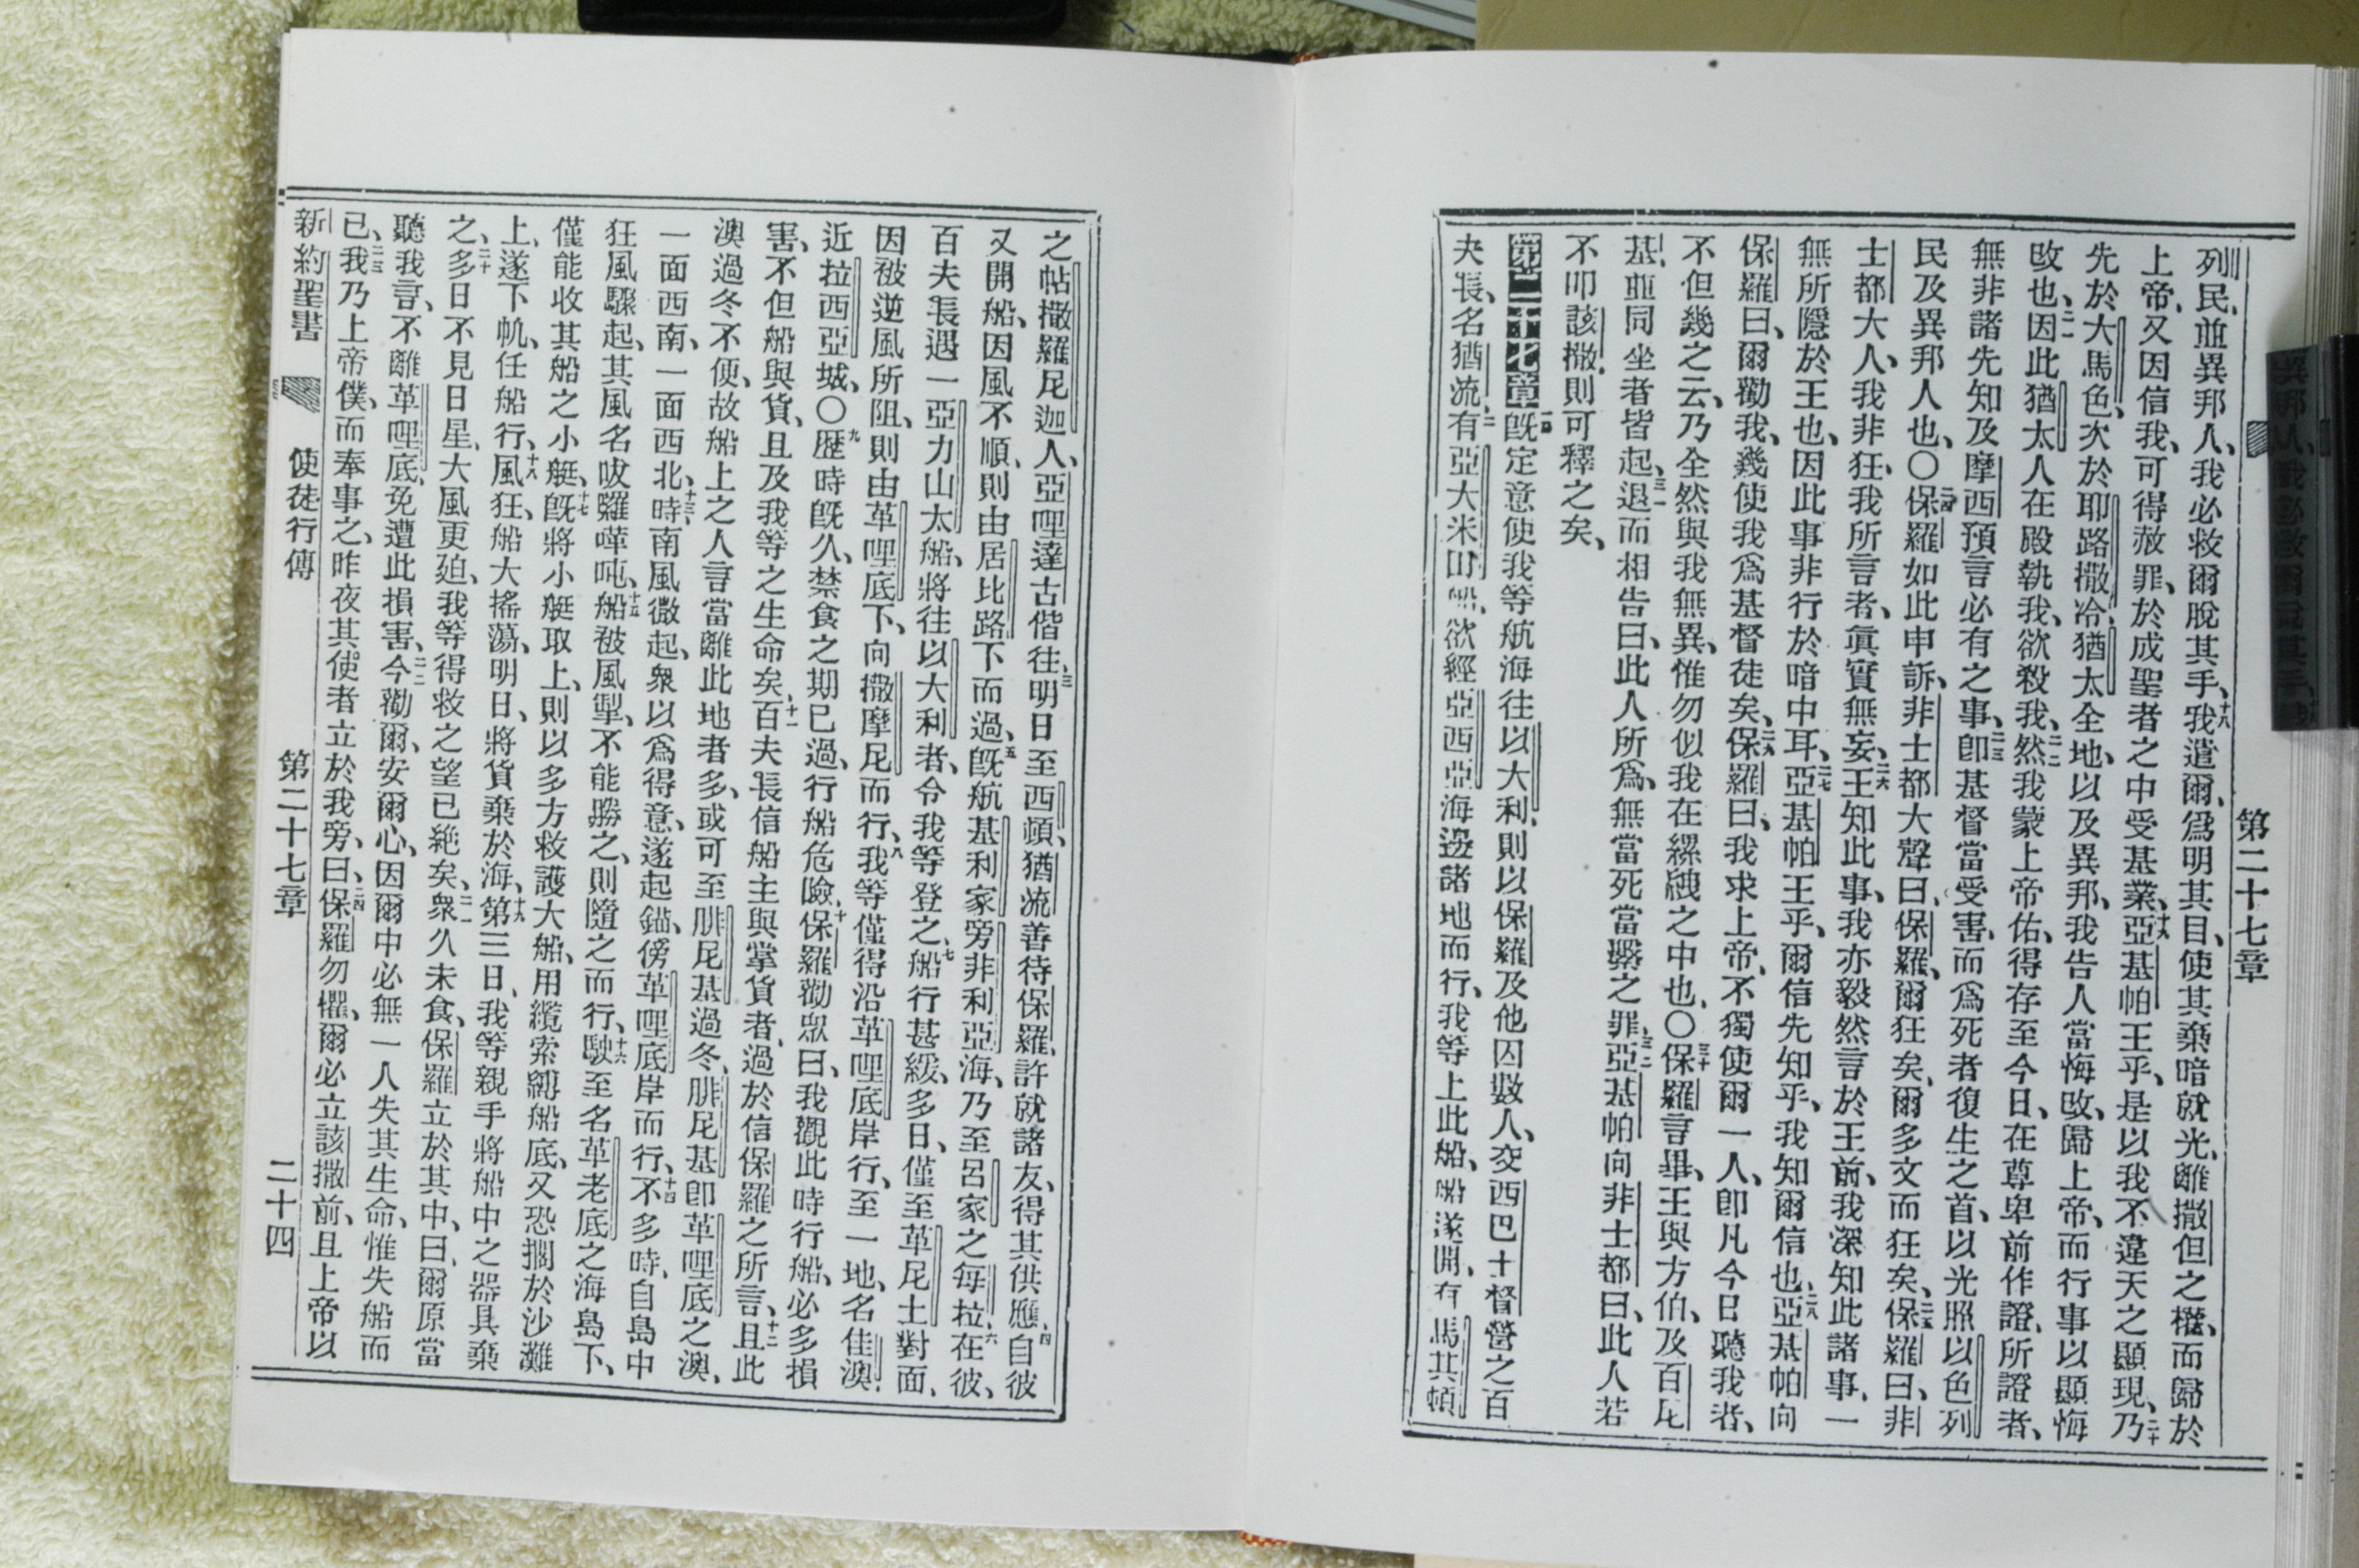 第二十七章
列民、並異邦人、我必救爾脫其手、十八我遣爾、爲明其目、使其棄暗就光、離撒但之權、而歸於
上帝、又因信我、可得赦罪、於成聖者之中受基業、十九亞基帕王乎、是以我不違天之顯現、二十乃
先於大馬色、次於耶路撒冷、猶太全地、以及異邦、我告人當悔改、歸上帝、而行事以顯悔
改也、二一因此猶太人在殿執我、欲殺我、二二然我蒙上帝佑、得存至今日、在尊卑前作證、所證者、
無非諸先知及摩西預言必有之事、二三卽基督當受害、而爲死者復生之首、以光照以色列
民及異邦人也、〇二四保羅如此申訴、非士都大聲曰、保羅、爾狂矣、爾多文而狂矣、二五保羅曰、非
士都大人、我非狂、我所言者、眞實無妄、二六王知此事、我亦毅然言於王前、我深知此諸事、一
無所隱於王也、因此事非行於暗中耳、二七亞基帕王乎、爾信先知乎、我知爾信也、二八亞基帕向
保羅曰、爾勸我、幾使我爲基督徒矣、二九保羅曰、我求上帝、不獨使爾一人、卽凡今日聽我者、
不但幾之云、乃全然與我無異、惟勿似我在縲絏之中也、〇三十保羅言畢、王與方伯、及百尼
基、並同坐者皆起、三一退而相告曰、此人所爲、無當死當繫之罪、三二亞基帕向非士都曰、此人若
不叩該撒、則可釋之矣、
第二十七章 一旣定意使我等航海往以大利、則以保羅及他囚數人、交西巴士督營之百
夫長、名猶流、二有亞大米田船、欲經亞西亞海邊諸地而行、我等上此船、船遂開、有馬其頓
之帖撒羅尼迦人、亞哩達古偕往、三明日至西頓、猶流善待保羅、許就諸友、得其供應、四自彼
又開船、因風不順、則由居比路下而過、五旣航基利家旁非利亞海、乃至呂家之每拉、六在彼、
百夫長遇一亞力山太船、將往以大利者、令我等登之、七船行甚緩、多日、僅至革尼土對面、
因被逆風所阻、則由革哩底下、向撒摩尼而行、八我等僅得沿革哩底岸行、至一地、名佳澳、
近拉西亞城、〇九歷時旣久、禁食之期已過、行船危險、十保羅勸眾曰、我觀此時行船、必多損
害、不但船與貨、且及我等之生命矣、十一百夫長信船主與掌貨者、過於信保羅之所言、十二且此
澳過冬不便、故船上之人言當離此地者多、或可至腓尼基過冬、腓尼基卽革哩底之澳、
一面西南、一面西北、十三時南風微起、衆以爲得意、遂起錨、傍革哩底岸而行、十四不多時、自島中
狂風驟起、其風名㕹囉嘩吨、十五船被風掣、不能勝之、則隨之而行、十六駛至名革老底之海島下、
僅能收其船之小艇、十七旣將小艇取上、則以多方救護大船、用纜索縛船底、又恐擱於沙灘
上、遂下帆、任船行、十八風狂、船大搖蕩、明日、將貨棄於海、十九第三日、我等親手將船中之器具棄
之、二十多日不見日星、大風更廹、我等得救之望已絶矣、二一衆久未食、保羅立於其中、曰、爾原當
聽我言、不離革哩底、免遭此損害、二二今勸爾、安爾心、因爾中必無一人失其生命、惟失船而
已、二三我乃上帝僕、而奉事之、昨夜其使者立於我旁、曰、二四保羅勿懼、爾必立該撒前、且上帝以
新約聖書 使徒行傳 第二十七章 二十四